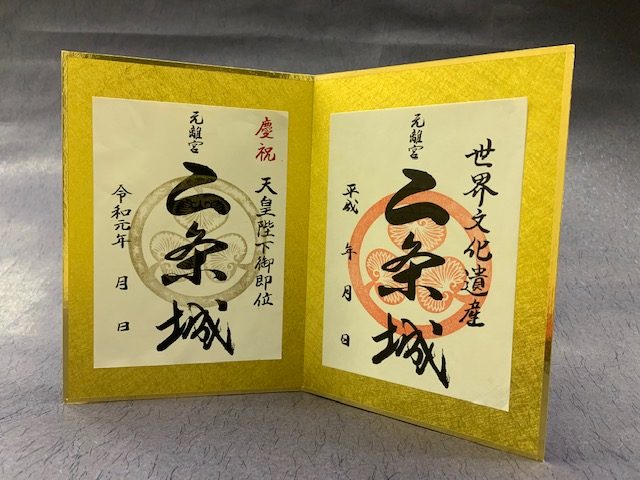 世界文化遺産
元離宮
二条城
平成 年 月 日
慶祝
天皇陛下御即位
元離宮
二条城
令和元年 月 日